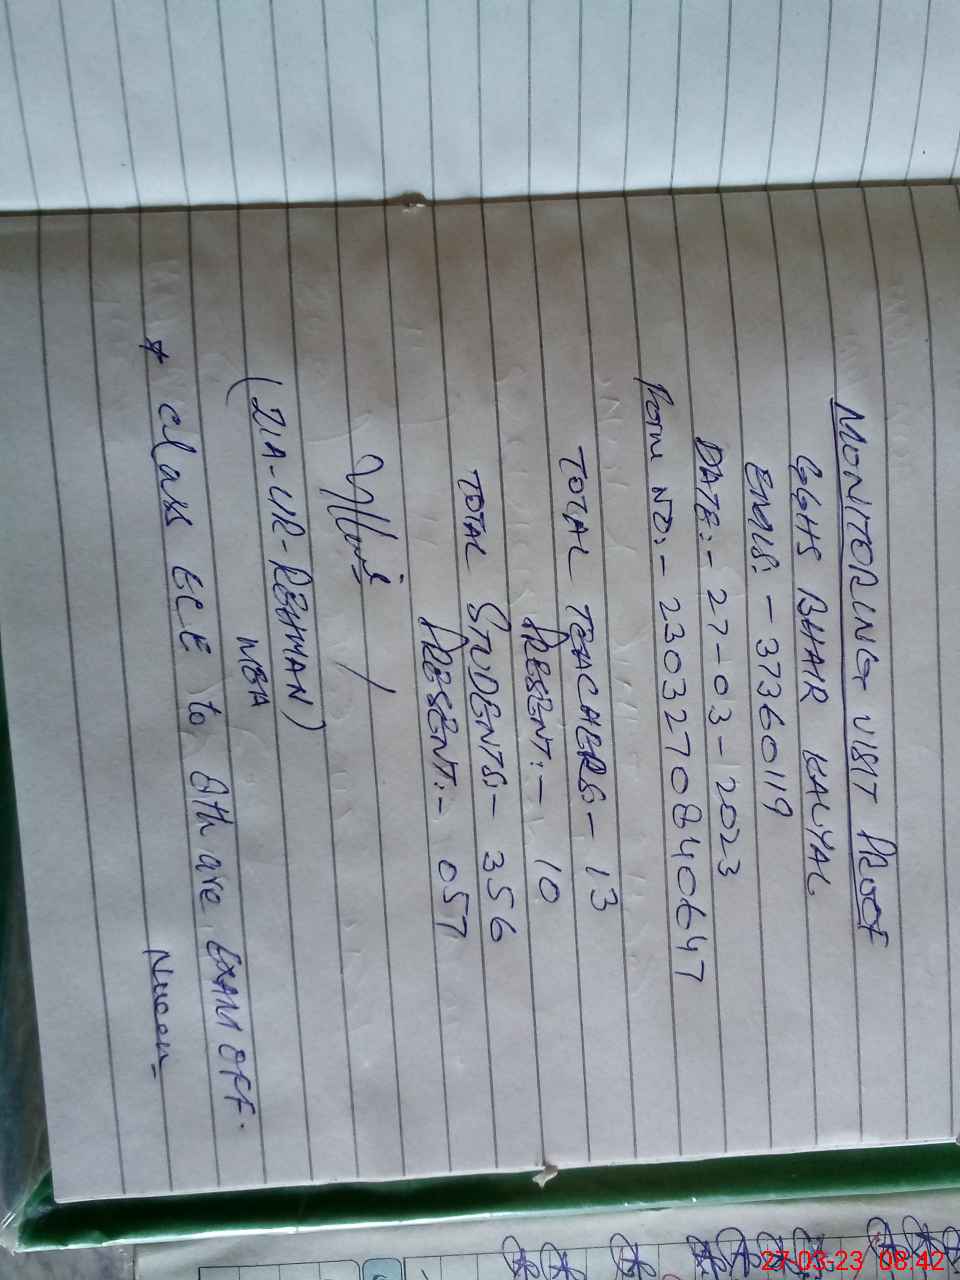 MONITORING VISIT PROOF
GGHS BHAIR KALYAL
EMIS:- 37360119
DATE:- 27-03-2023
FORM NO:- 2303270840647
TOTAL TEACHERS:- 13
PRESENT:- 10
TOTAL STUDENTS:- 356
PRESENT:- 057
(ZIA-UR-REHMAN)
MEA
* Class ECE to 8th are EXAM OFF.
27-03-23 08:42